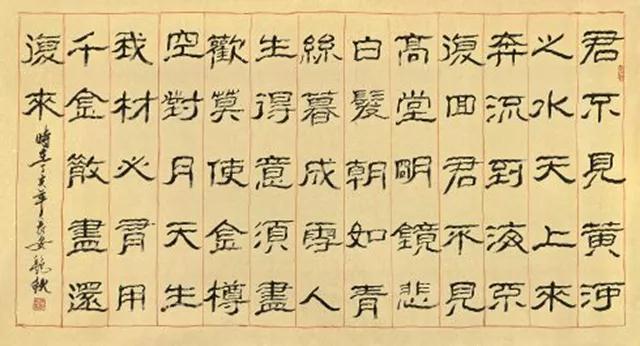 君不見黃河
之水天上來
奔流到海不
復回君不見
高堂明鏡悲
白髮朝如青
絲暮成雪人
生得意須盡
歡莫使金樽
空對月天生
我材必有用
千金散盡還
復來
時在丁亥年